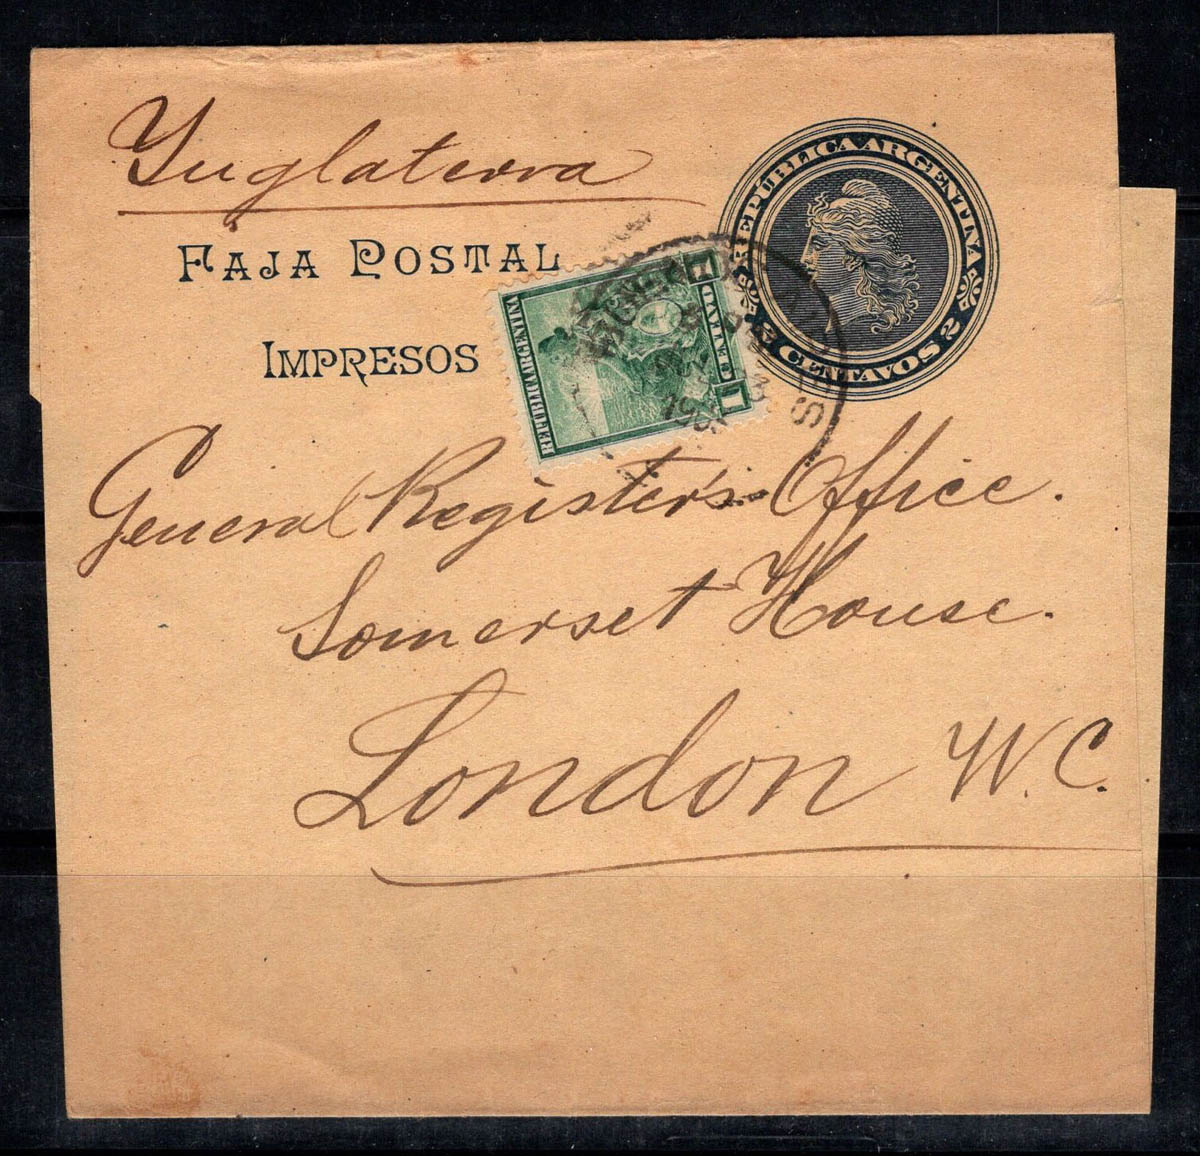 Inglaterra
REPÚBLICA ARGENTINA
2 CENTAVOS 2
FAJA POSTAL
IMPRESOS
REPUBLICA ARGENTINA
1 CENTAVO 1
General Register's Office.
Somerset House.
London W.C.